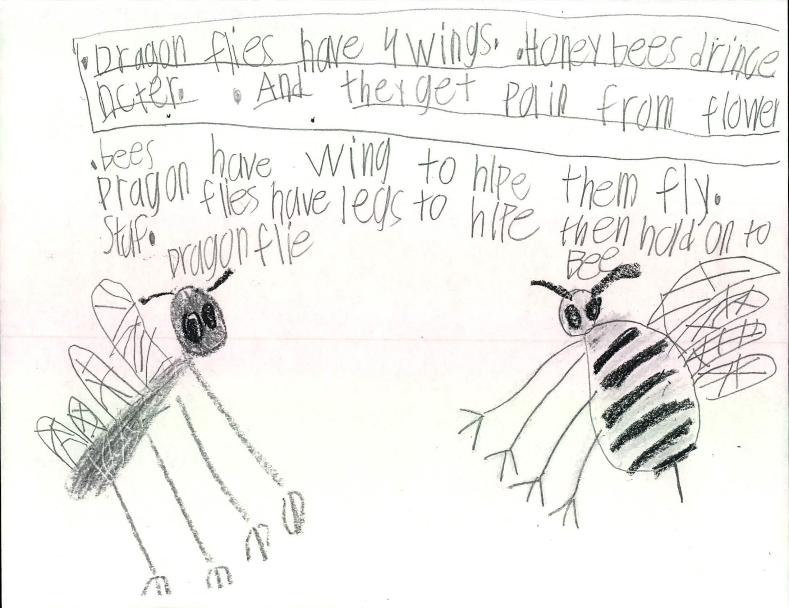 • Dragon flies have 4 wings. • Honey bees drince
ncter. • And they get pain from flower
• bees have wing to hlpe them fly.
Dragon flies have legs to hlpe then hold on to
stuf.
Dragon flie
Bee